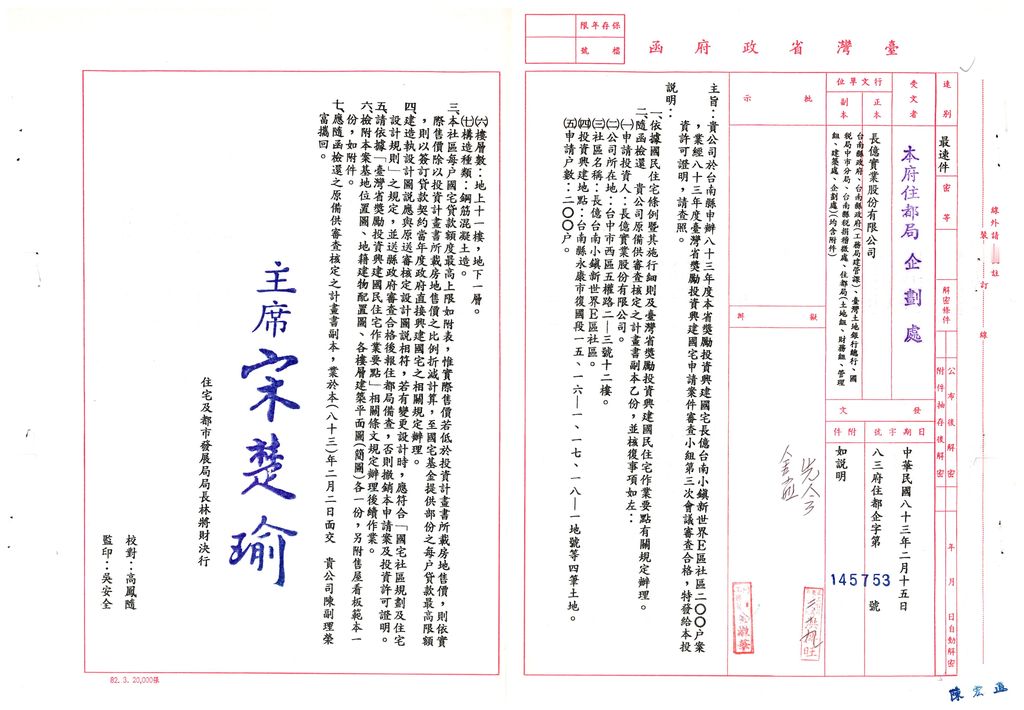 臺灣省政府函
保存年限
檔號
速別
最速件
密等
解密條件
公布後解密
附件抽存後解密
年月日自動解密
受文者
本府住都局企劃處
行文單位
正本
長億實業股份有限公司
副本
台南縣政府、台南縣政府(工務局建管課)、臺灣土地銀行總行、國
稅局中市分局、台南縣稅捐稽徵處、住都局(土地組、財務組、管理
組、建築處、企劃處)(均含附件)
發文
日期
中華民國八十三年二月十五日
字號
八三府住都企字第145753號
附件
如說明
批示
擬辦
主旨：貴公司於台南縣申辦八十三年度本省獎勵投資興建國宅長億台南小鎮新世界E區社區二〇〇户案
，業經八十三年度臺灣省獎勵投資興建國宅申請案件審查小組第三次會議審查合格，特發給本投
資許可證明，請查照。
說明：
一、依據國民住宅條例暨其施行細則及臺灣省獎勵投資興建國民住宅作業要點有關規定辦理。
二、隨函檢還　貴公司原備供審查核定之計畫書副本乙份，並核復事項如左：
㈠申請投資人：長億實業股份有限公司。
㈡公司所在地：台中市西區五權路二—三號十二樓。
㈢社區名稱：長億台南小鎮新世界E區社區。
㈣投資興建地點：台南縣永康市復國段一五、一六—一、一七、一八—一地號等四筆土地。
㈤申請户數：二〇〇户。
㈥樓層數：地上十一樓，地下一層。
㈦構造種類：鋼筋混凝土造。
三、本社區每户國宅貸款額度最高上限如附表，惟實際售價若低於投資計畫書所載房地售價，則依實
際售價除以投資計畫書所載房地售價之比例折減計算，至國宅基金提供部份之每户貸款最高限額
，則以簽訂貸款契約當年度政府直接興建國宅之相關規定辦理。
四、建造執設計圖說應與原送審核定設計圖說相符，若有變更設計時，應符合「國宅社區規劃及住宅
設計規則」之規定，並送縣政府審查合格後報住都局備查，否則撤銷本申請案及投資許可證明。
五、請依據「臺灣省獎勵投資興建國民住宅作業要點」相關條文規定辦理後續作業。
六、檢附本案基地位置圖、地籍建物配置圖、各樓層建築平面圖(簡圖)各一份，另附售屋看板範本一
份，如附件。
七、應隨函檢還之原備供審查核定之計畫書副本，業於本(八十三)年二月二日面交　貴公司陳副理榮
富攜回。
主席宋楚瑜
住宅及都市發展局局長林將財決行
校對：高鳳隨
監印：吳安全
82. 3. 20,000張
裝訂線
陳宏進